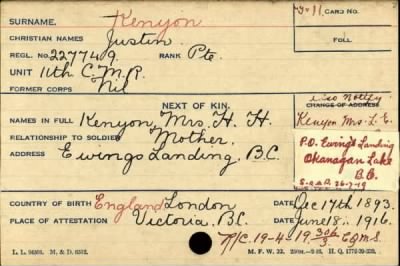 SURNAME. Kenyon CARD NO.
CHRISTIAN NAMES Justin FOLL.
REGL. NO. 227749. RANK Pte.
UNIT 11th C.M.R.
FORMER CORPS Nil
NEXT OF KIN.
also Notify
CHANGE OF ADDRESS
NAMES IN FULL Kenyon, Mrs. H. H. Kenyon Mrs. L. E.
RELATIONSHIP TO SOLDIER Mother.
ADDRESS Ewings Landing, B.C. P.O. Ewing's Landing
Okanagan Lake
B.C.
COUNTRY OF BIRTH England London DATE Dec 17th 1893.
PLACE OF ATTESTATION Victoria, B.C. DATE June 18th. 1916.
19-4-19
L. L. M. & D. M. F. W. 22. H. Q. 1772-39-339.